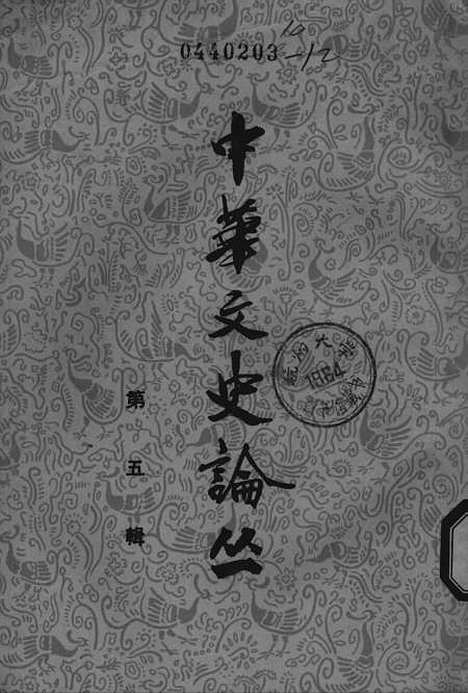 0440203
10-12
中華文史論丛
第五輯
1984